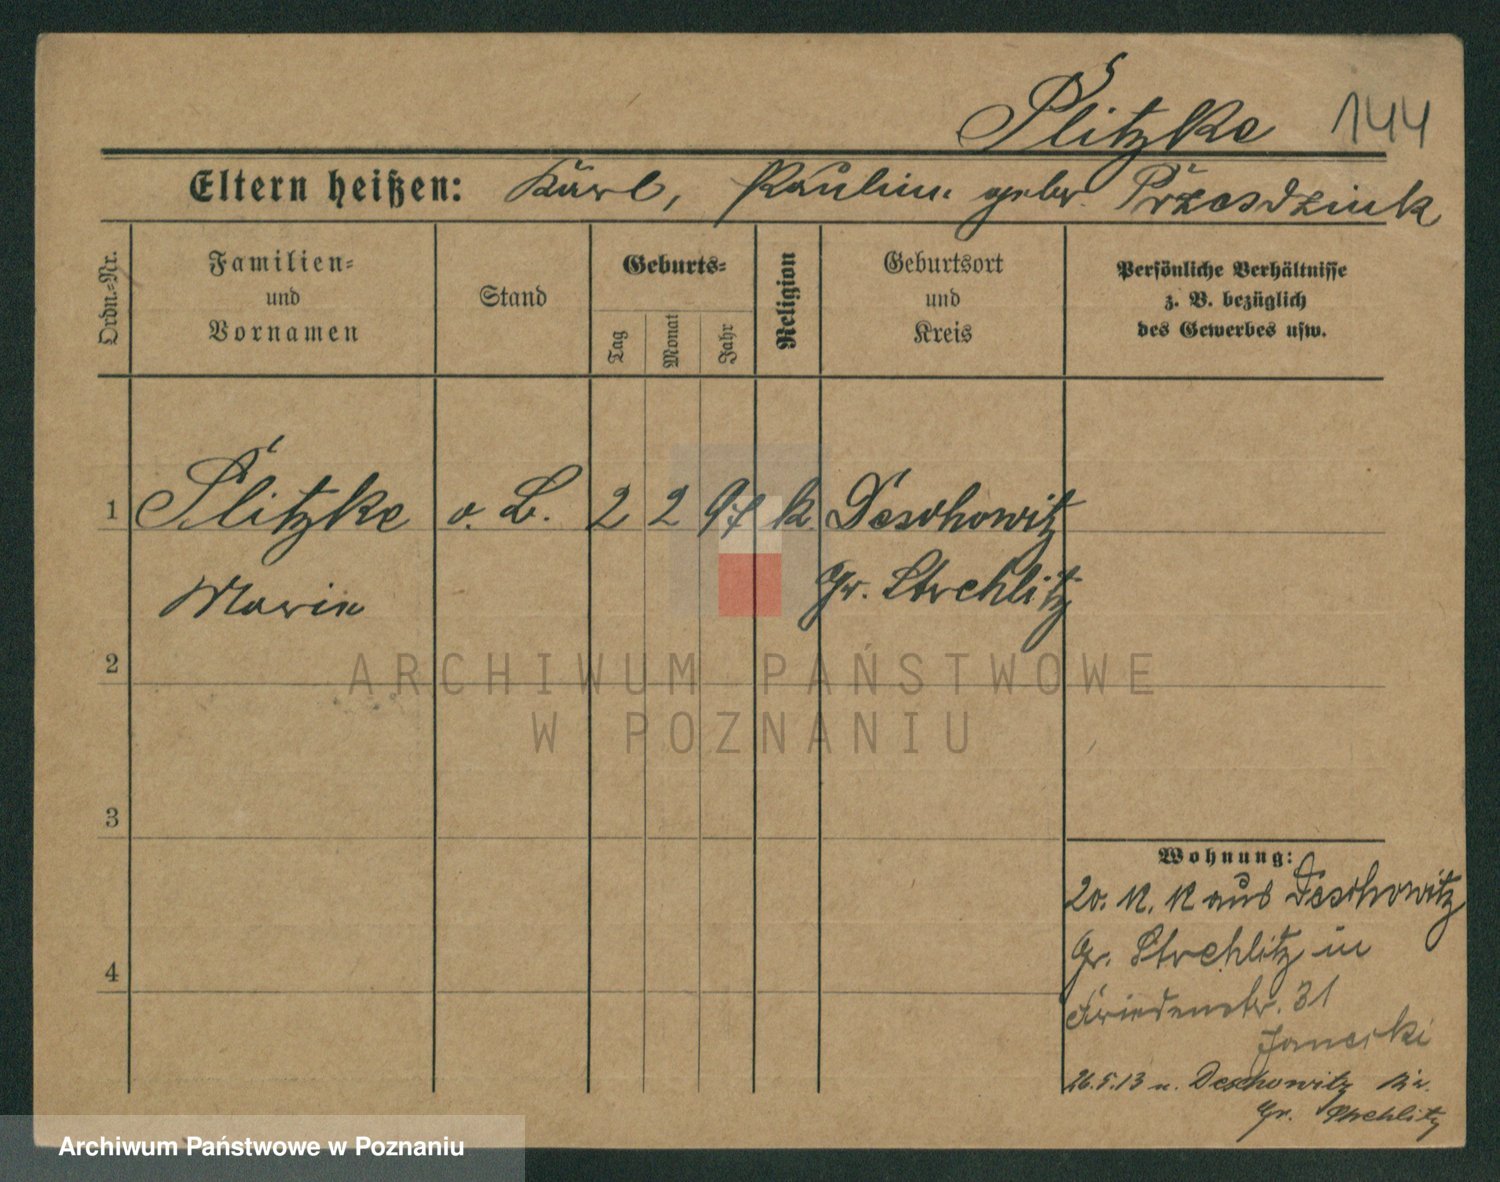 Plitzke 144
Eltern heißen: Karl, Paulin. geb. Przesdzink
Ordn.-Nr.
Familien-
und
Vornamen
Stand
Geburts-
Tag
Monat
Jahr
Religion
Geburtsort
und
Kreis
Persönliche Verhältnisse
z. B. bezüglich
des Gewerbes usw.
1 Plitzke o. B. 2 2 97 k Deschowitz
Marie Gr. Strehlitz
2
ARCHIWUM PAŃSTWOWE
W POZNANIU
3
Wohnung:
20. 12. 12 aus Deschowitz
Gr. Strehlitz in
4
Friedenstr. 31
Janeski
26.5.13 n. Deschowitz Kr.
Gr. Strehlitz
Archiwum Państwowe w Poznaniu